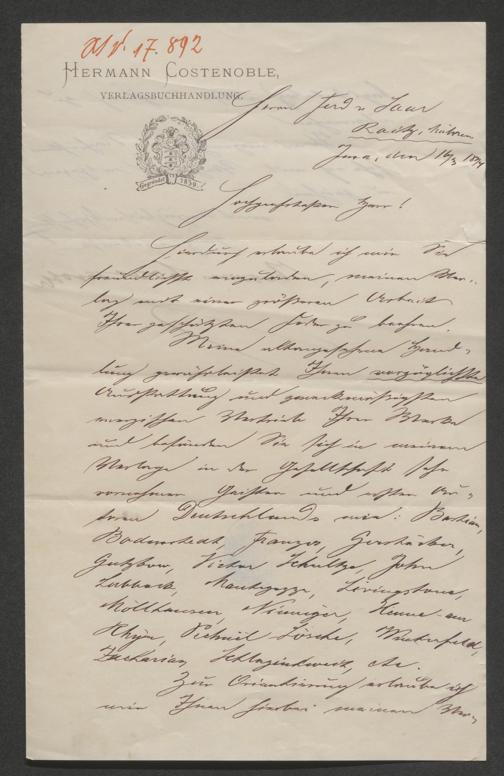 17.892
HERMANN COSTENOBLE,
VERLAGSBUCHHANDLUNG.
Gegründet 1850.
Herrn Ferd v. Saar
Raitz, Mähren
Jena, den 16/3 18
Hochgeehrtester Herr!
Hierdurch erlaube ich mir Sie
freundlichst einzuladen, meinen Ver-
lag mit einer größeren Arbeit
Ihrer geschätzten Feder zu beehren.
Meine altangesehene Hand-
lung gewährleistet Ihnen vorzüglichste
Ausstattung und zweckmäßigsten
energischen Vertrieb Ihrer Werke
und befinden Sie sich in meinem
Verlage in der Gesellschaft sehr
vornehmer Geister und erster Au-
toren Deutschlands wie: Bastian,
Bodenstedt, Franzos, Gerstäcker,
Gutzkow, Victor Schultze, John
Lubbock, Mantegazza, Livingstone,
Möllhausen, Henne am
Rhyn, Winterfeld,
Schlagintweit, etc.
Zur Orientierung erlaube ich
mir Ihnen hierbei meinen Ver-